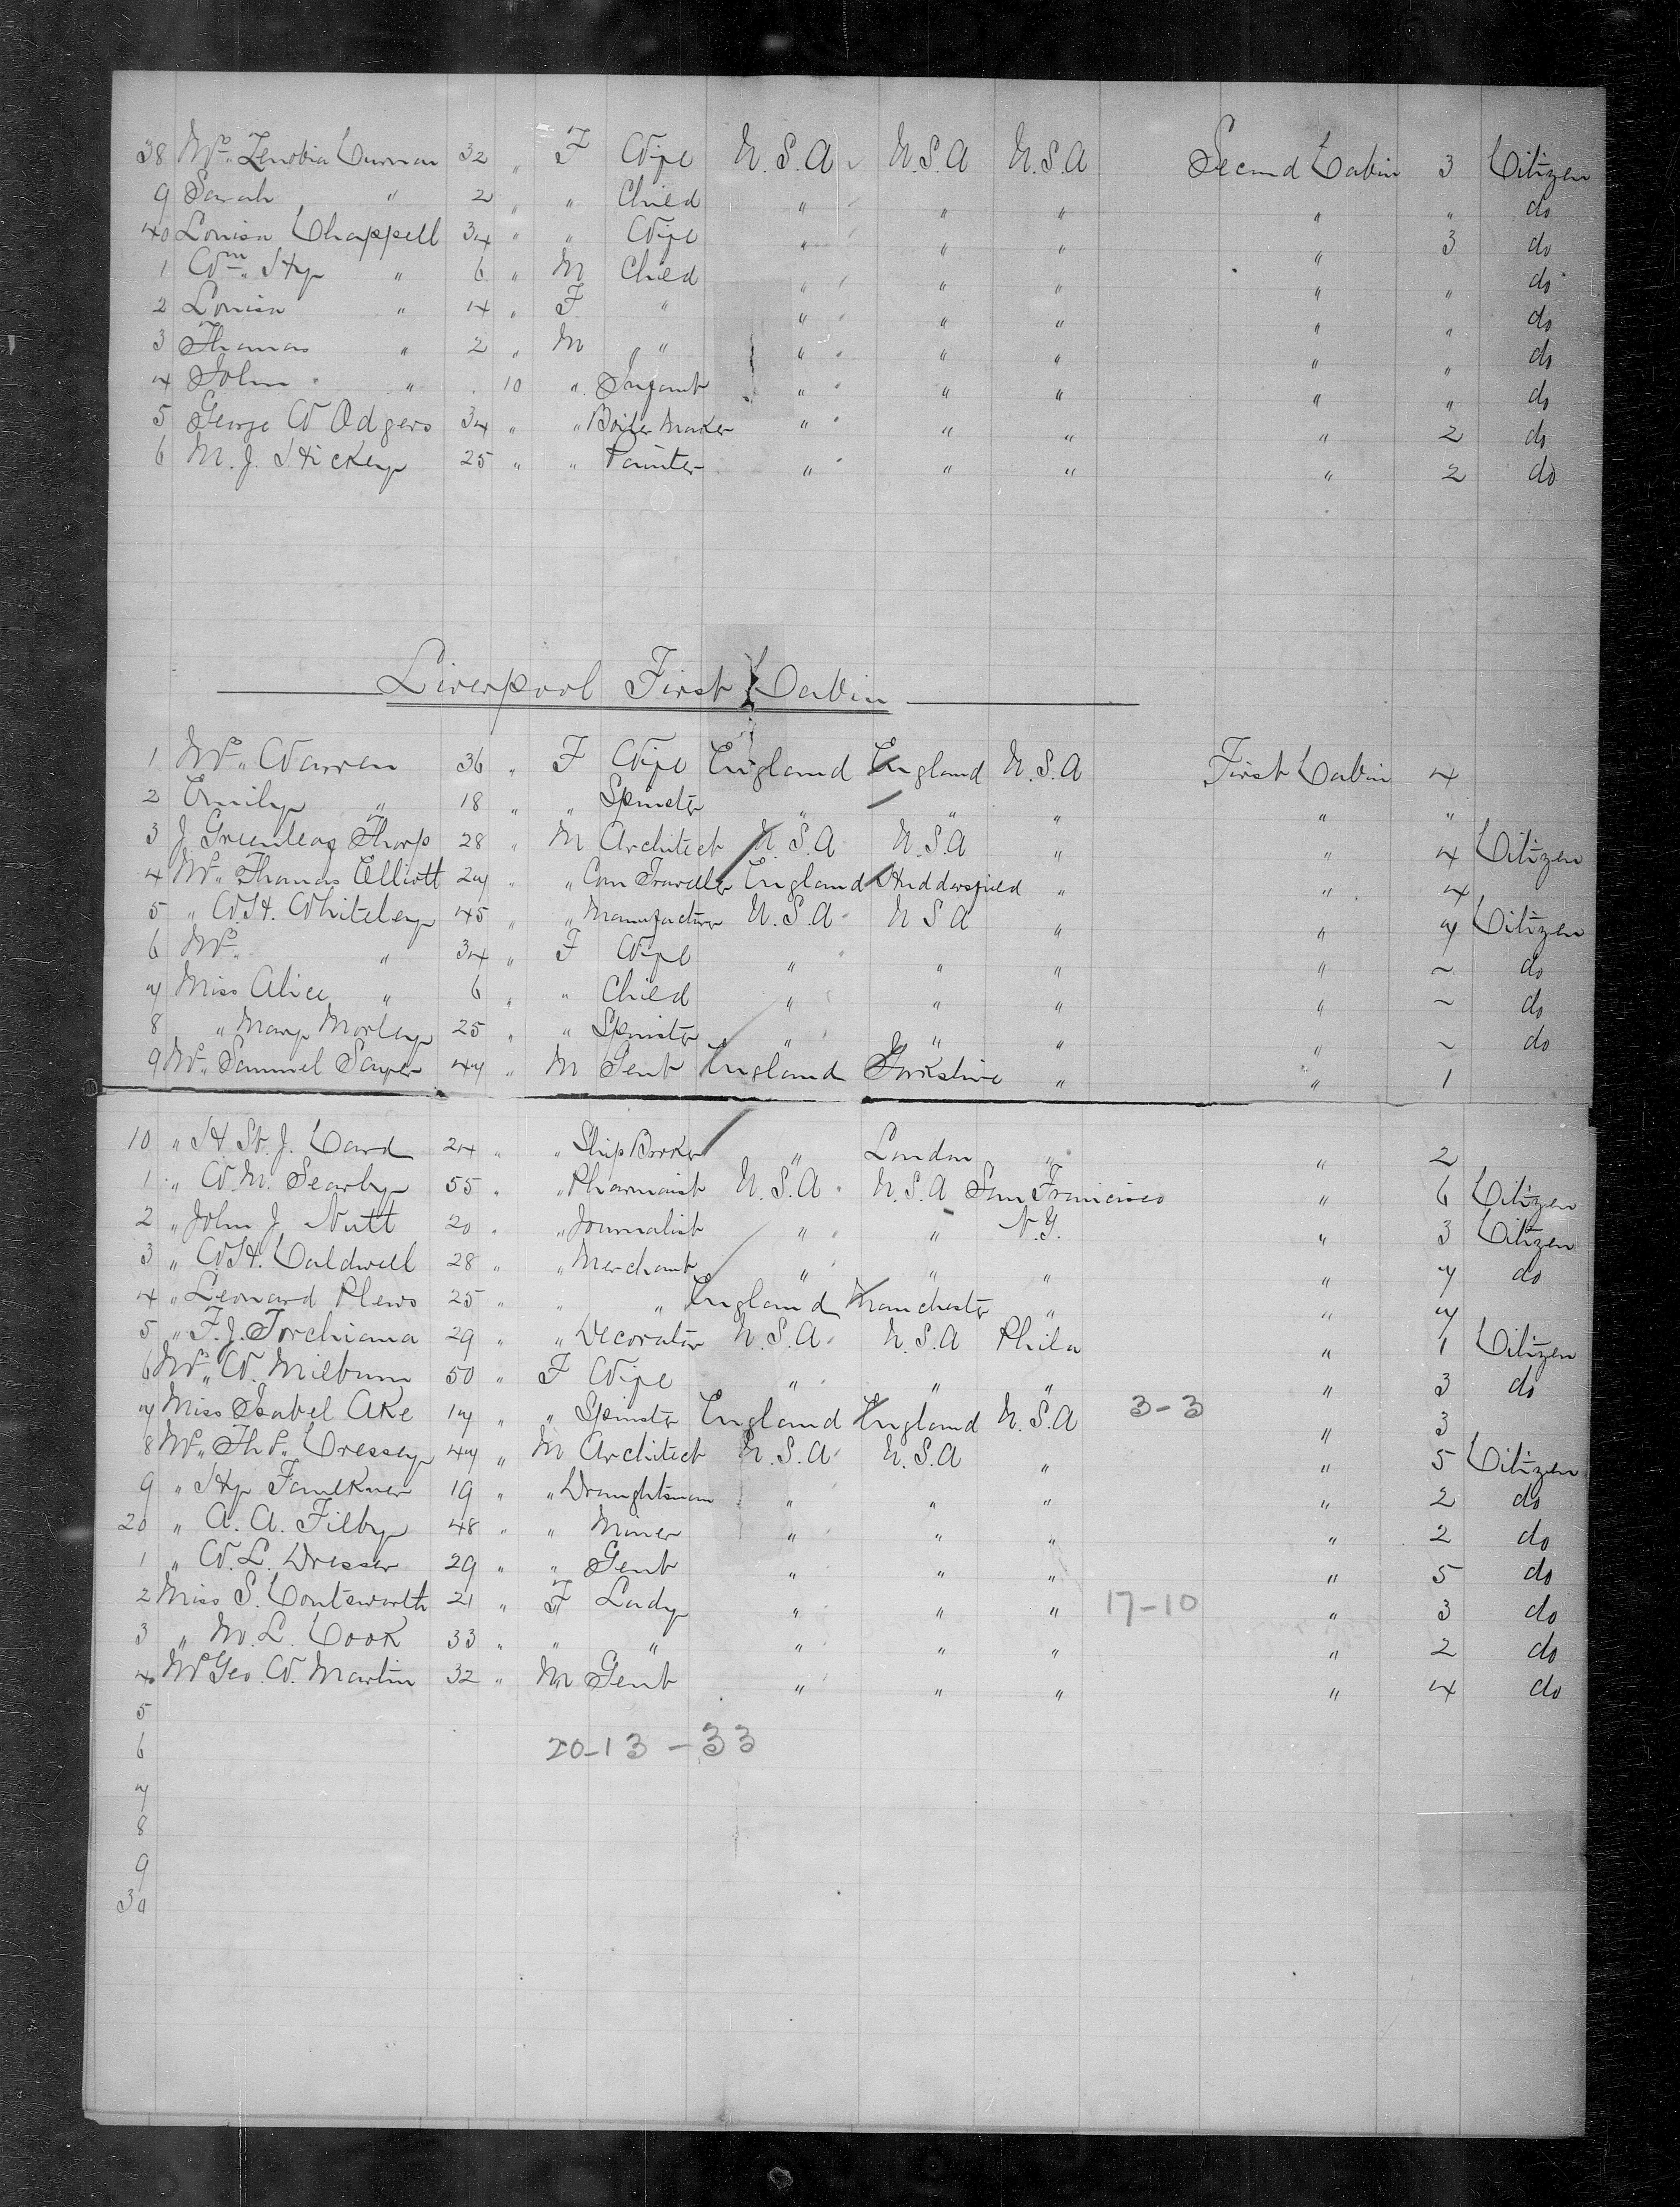 38 Mrs. Zenobia Curnow 32 " F Wife U.S.A U.S.A U.S.A Second Cabin 3 Citizen
9 Sarah " 2 " " Child " " " " " do
40 Louisa Chappell 34 " " Wife " " " " 3 do
1 Wm. Hy " 6 " M Child " " " " " do
2 Louisa " 4 " F " " " " " " do
3 Thomas " 2 " M " " " " " " do
4 John " 10 " Infant " " " " " do
5 George W Odgers 34 " " Boiler Maker " " " " 2 do
6 M. J. Hickey 25 " " Painter " " " " 2 do
Liverpool First Cabin
1 Mrs. Warren 36 " F Wife England England U.S.A First Cabin 4
2 Emily " 18 " " Spinster " " " " "
3 J Greenleaf Thorp 28 " M Architect U.S.A U.S.A " " 4 Citizen
4 Mr. Thomas Elliott 27 " " Com Traveller England Huddersfield " " 4
5 " W.H. Whiteley 45 " " Manufacturer U.S.A U S A " " 7 Citizen
6 Mrs. " 34 " F Wife " " " " ~ do
7 Miss Alice " 6 " " Child " " " " ~ do
8 " Mary Morley 25 " " Spinster " " " " ~ do
9 Mr. Samuel Sayer 47 " M Gent England Yorkshire " " 1
10 " H St. J. Card 24 " " Ship Broker " London " " 2
1 " W.M. Searby 55 " " Pharmaist U.S.A U.S.A San Francisco " 6 Citizen
2 " John J Nutt 20 " " Journalist " " N.Y. " 3 Citizen
3 " W.H. Caldwell 28 " " Merchant " " " " 7 do
4 " Leonard Plews 25 " " " England Manchester " " 7
5 " F.J. Torchiana 29 " " Decorator U.S.A U.S.A Phila " 1 Citizen
6 Mrs. W. Milburn 50 " F Wife " " " " 3 do
7 Miss Isabel Ake 17 " " Spinster England England U.S.A 3-3 " 3
8 Mr. Th. P. Cressey 47 " M Architect U.S.A U.S.A " " 5 Citizen
9 " Hy Faulkner 19 " " Draughtsman " " " " 2 do
20 " A. A. Filby 48 " " Miner " " " " 2 do
1 " W.L. Dresser 29 " " Gent " " " " 5 do
2 Miss S. Coutsworth 21 " F Lady " " " 17-10 " 3 do
3 " M. L. Cook 33 " " " " " " " 2 do
4 Mr Geo. W. Martin 32 " M Gent " " " " 4 do
5
6 20-13-33
7
8
9
30